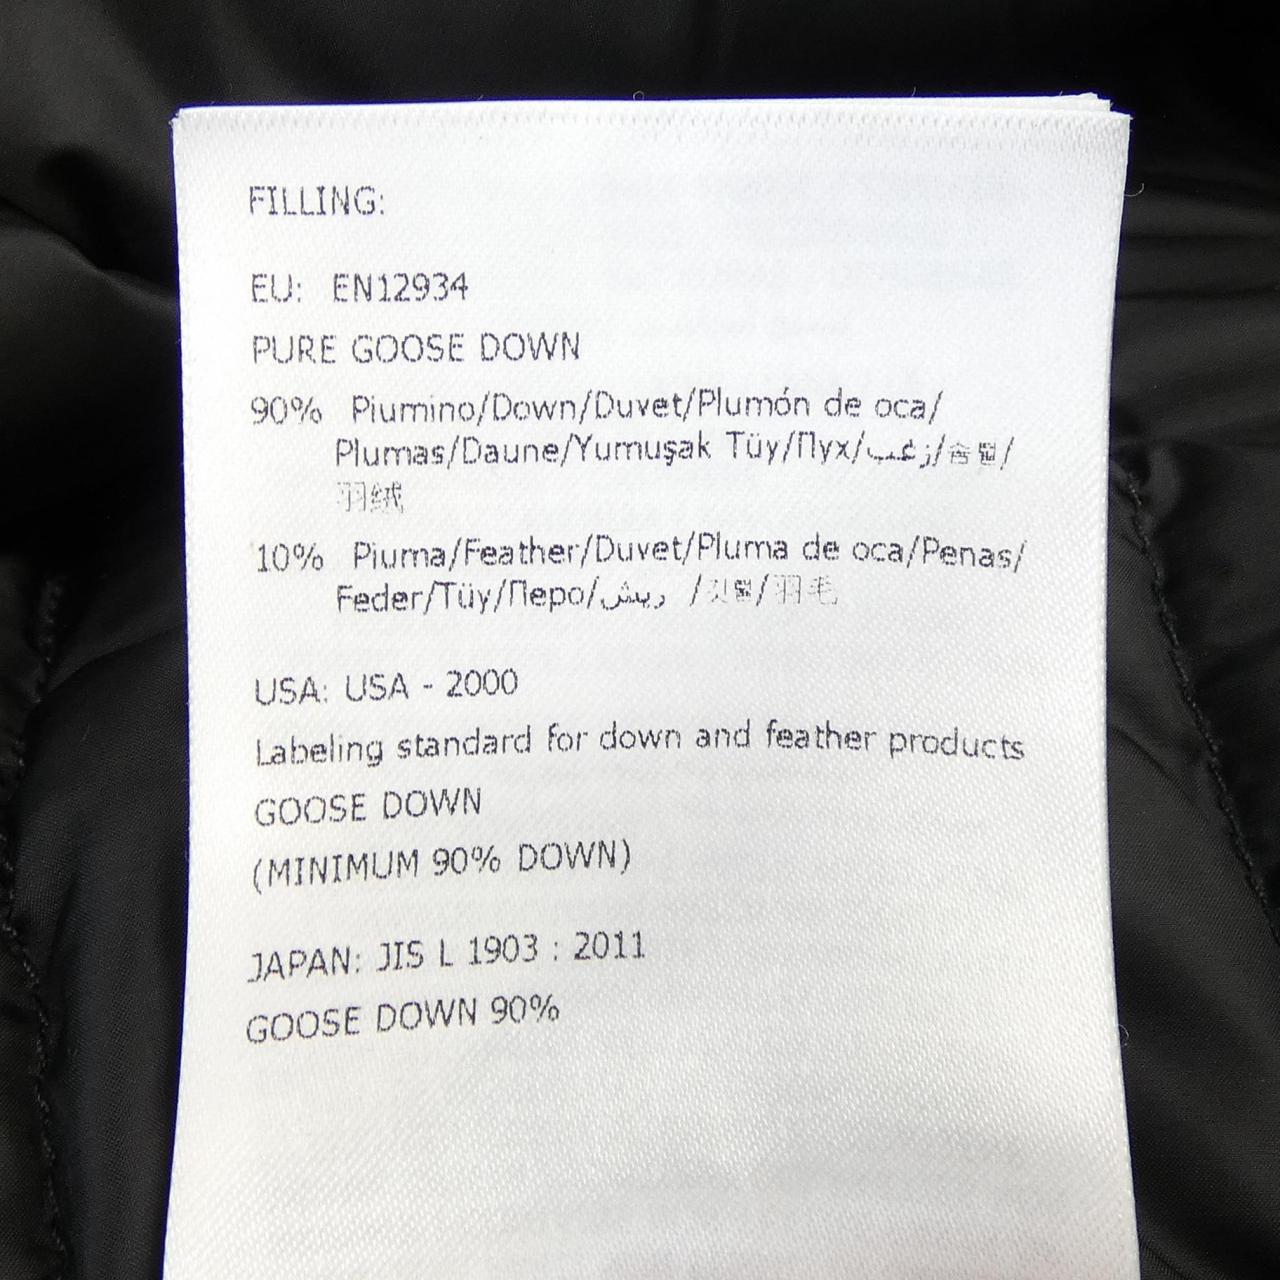 FILLING:
EU: EN12934
PURE GOOSE DOWN
90% Piumino/Down/Duvet/Plumón de oca/
Plumas/Daune/Yumuşak Tüy/Пух/زغب/솜털/
羽绒
10% Piuma/Feather/Duvet/Pluma de oca/Penas/
Feder/Tüy/Перо/ريش /깃털/羽毛
USA: USA - 2000
Labeling standard for down and feather products
GOOSE DOWN
(MINIMUM 90% DOWN)
JAPAN: JIS L 1903 : 2011
GOOSE DOWN 90%